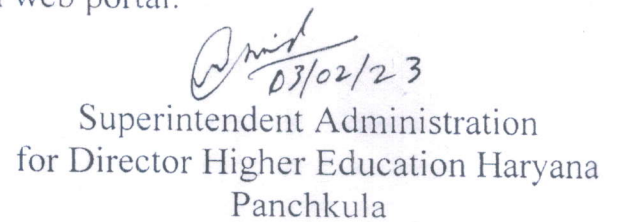 web portal.
03/02/23
Superintendent Administration
for Director Higher Education Haryana
Panchkula